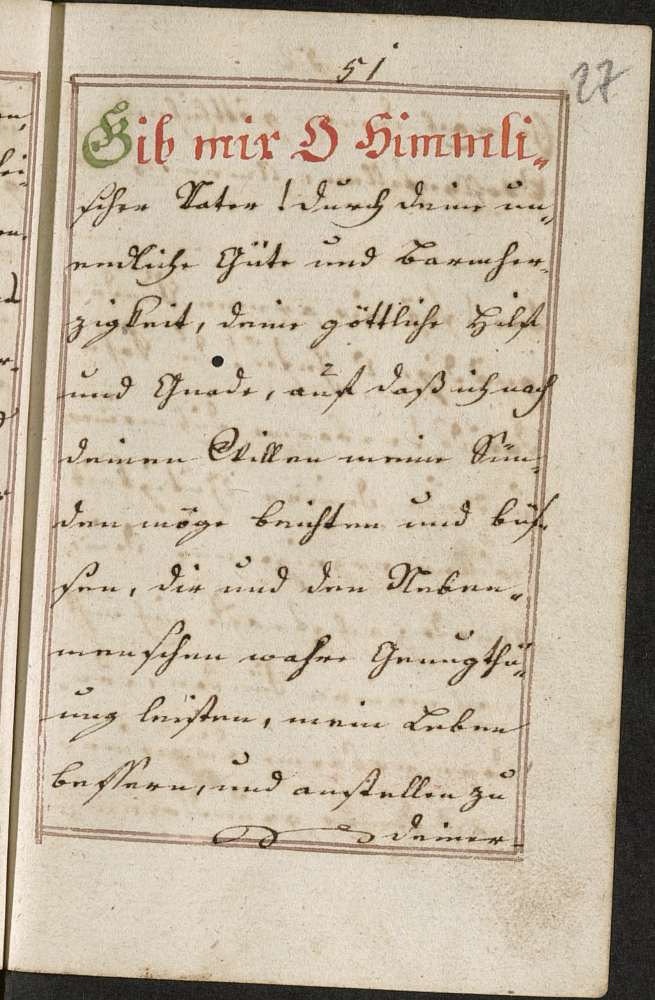 51
27
Gib mir O Himmli-
scher Vater! durch deine un-
endliche Güte und Barmher-
zigkeit, deine göttliche Hilf
und Gnade, auf daß ich nach
deinen Willen meine Sün-
den möge beichten und büs-
sen, dir und den Neben-
menschen wahre Genugthu-
ung leisten, mein Leben
bessern, und anstellen zu
deiner